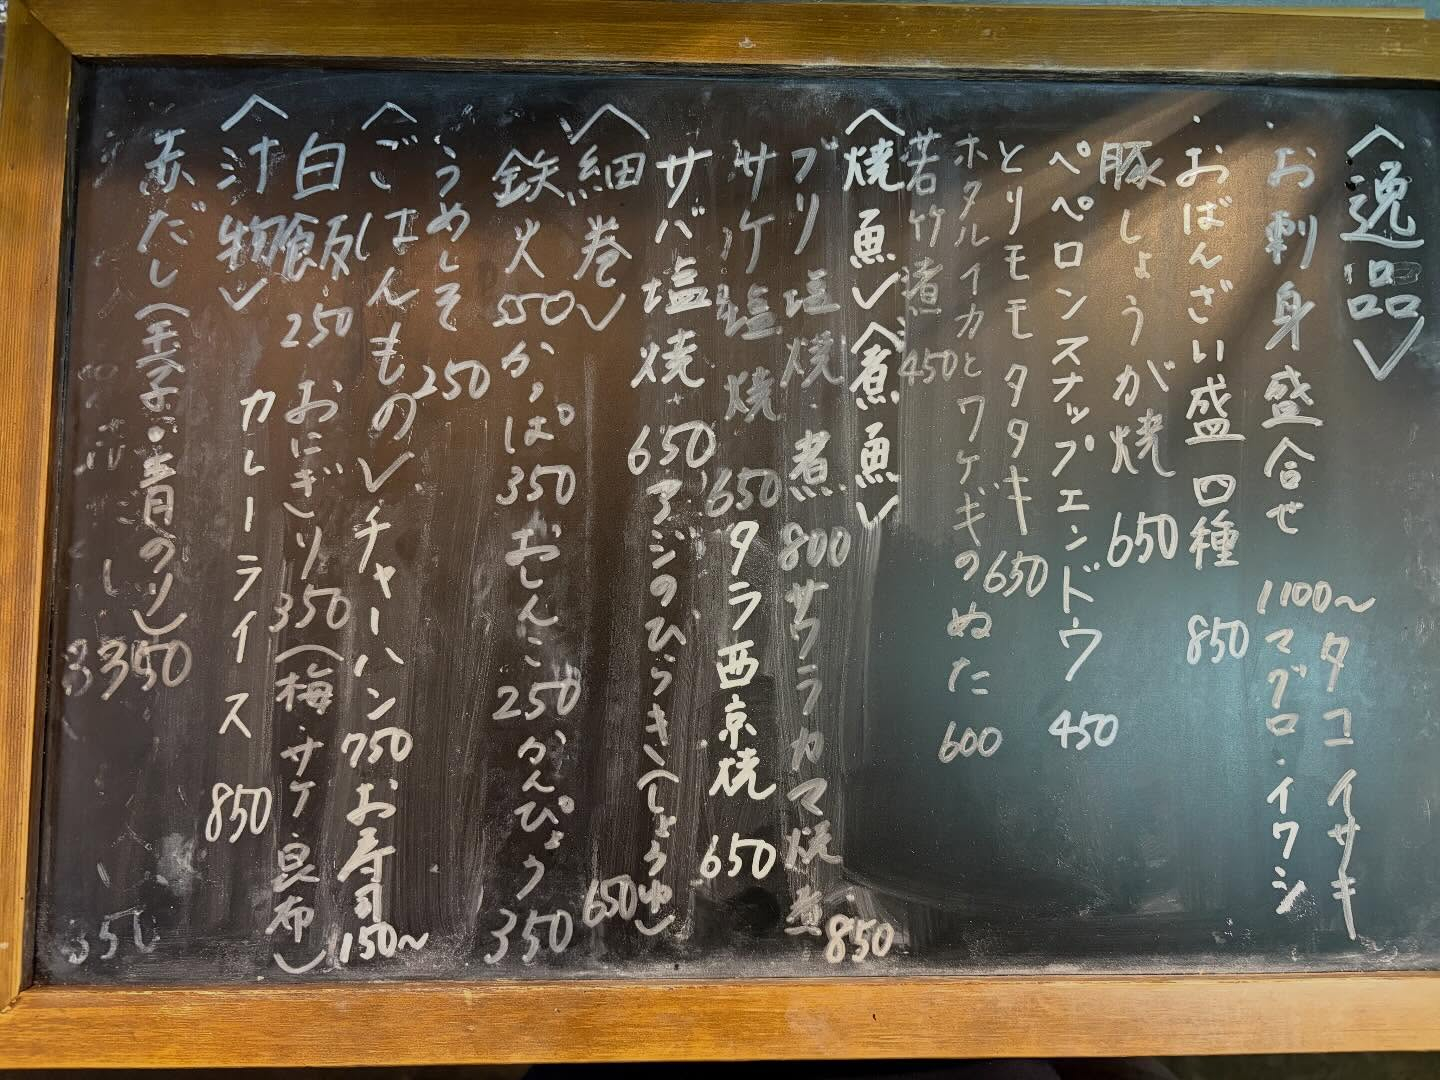 〈逸品〉
・お刺身盛合せ 1100〜 マグロ・イワシ
タコ イサキ
・おばんざい盛 口種 850
豚しょうが焼 650
ペペロンスナップエンドウ 450
とりモモタタキ 650
ホタルイカとワケギのぬた 600
若竹煮 450
〈焼魚〉〈煮魚〉
ブリ塩焼・煮 800 サワラカマ焼・煮 850
サケ塩焼 650 タラ西京焼 650
サバ塩焼 650 アジのひらき(しょうゆ) 650
〈細巻〉
鉄火 550 かっぱ 350 おしんこ 250 かんぴょう 350
うめしそ 250
〈ごはんもの〉チャーハン 750 お寿司 150〜
白飯 250 おにぎり 350 (梅・サケ・昆布)
〈汁物〉 カレーライス 850
赤だし(玉子・青のり) 350
350